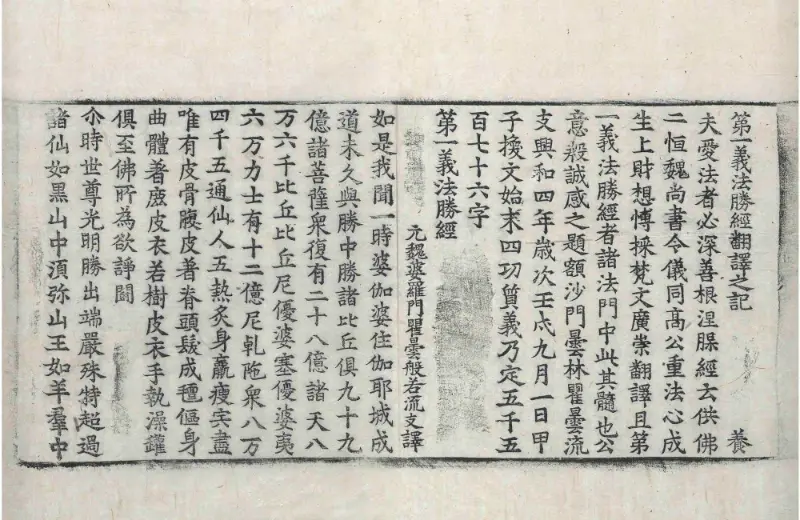 第一義法勝經翻譯之記 養
夫愛法者必深善根涅槃經云供佛
二恒魏尚書令儀同髙公重法心成
生上財想愽採梵文廣崇翻譯且第
一義法勝經者諸法門中此其髓也公
意殷誠感之題額沙門曇林瞿曇流
支興和四年歲次壬戌九月一日甲
子換文始末四功質義乃定五千五
百七十六字
第一義法勝經
元魏婆羅門瞿曇般若流支譯
如是我聞一時婆伽婆住伽耶城成
道未久與勝中勝諸比丘俱九十九
億諸菩薩衆復有二十八億諸天八
万六千比丘比丘尼優婆塞優婆夷
六万力士有十二億尼乹陁衆八万
四千五通仙人五熱炙身羸瘦宍盡
唯有皮骨腹皮著脊頭髮成氊傴身
曲體著鹿皮衣若樹皮衣手執澡鑵
俱至佛所為欲諍鬪
尒時世尊光明勝出端嚴殊特超過
諸仙如黒山中湏弥山王如羊羣中